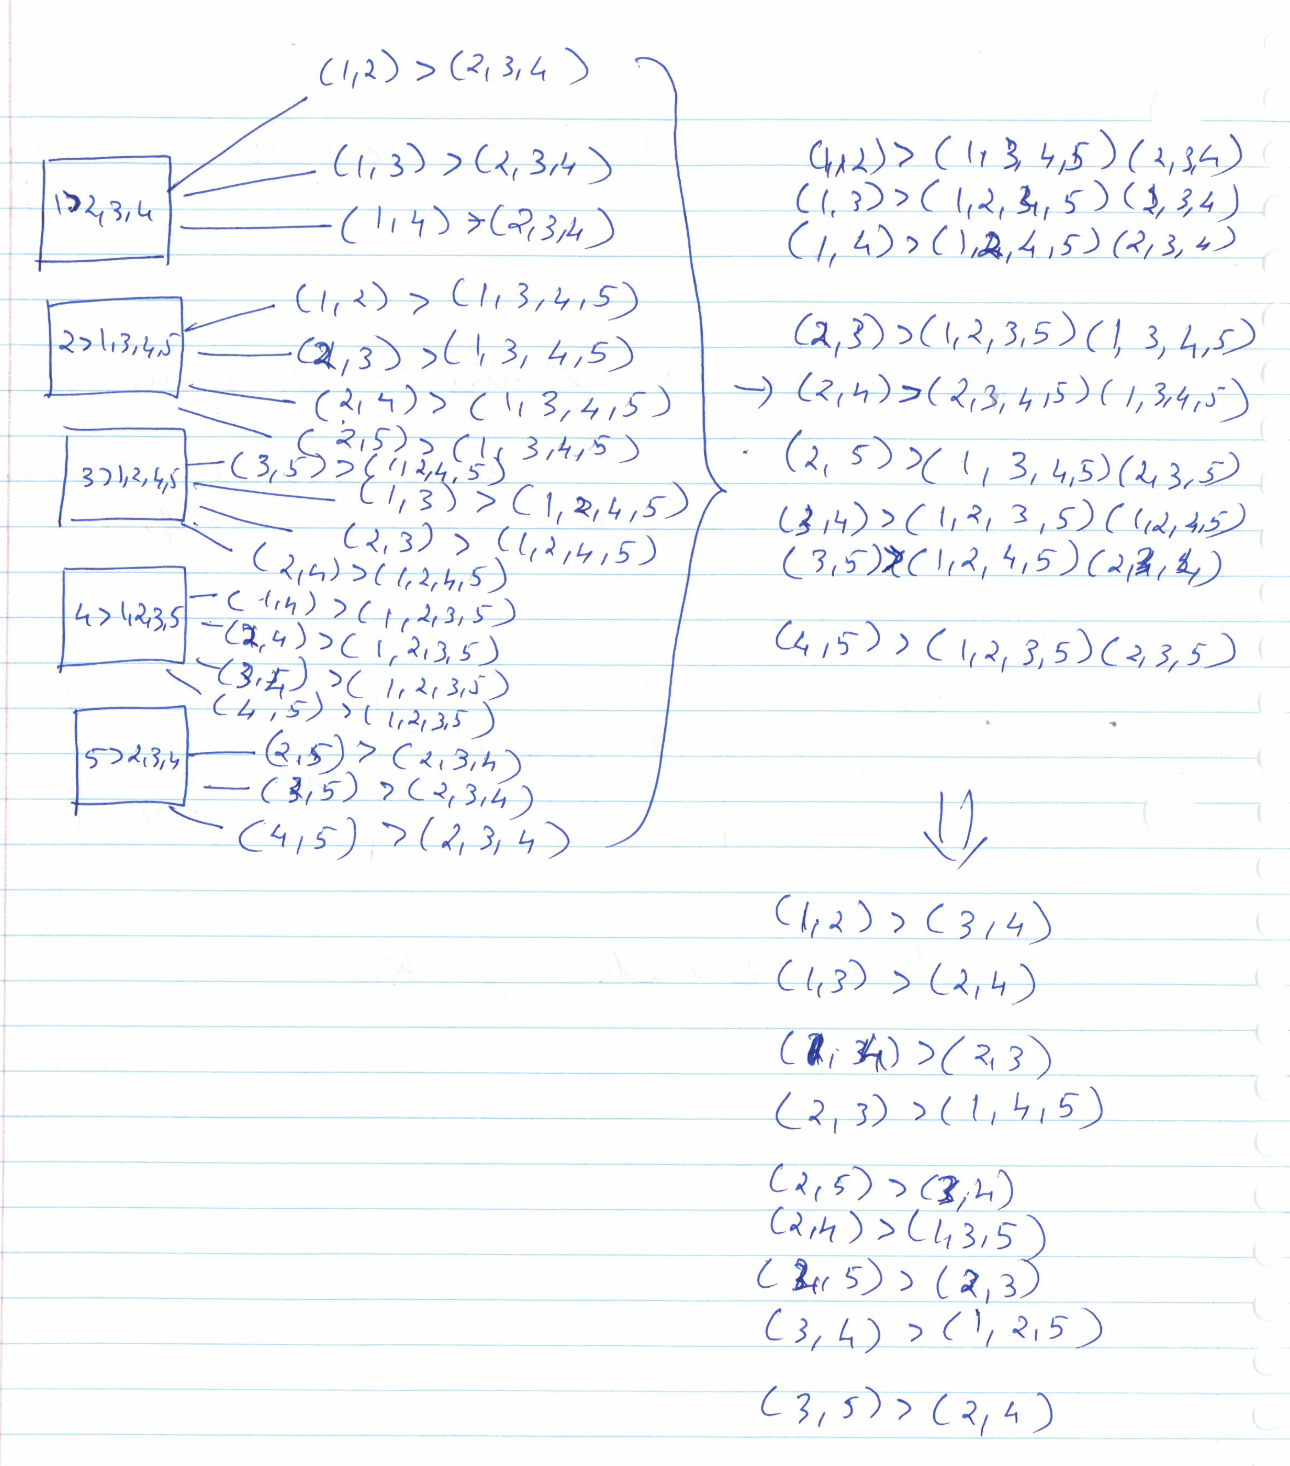 (1,2) > (2,3,4)
1>2,3,4
(1,3) > (2,3,4)
(1,4) > (2,3,4)
2>1,3,4,5
(1,2) > (1,3,4,5)
(2,3) > (1,3,4,5)
(2,4) > (1,3,4,5)
(2,5) > (1,3,4,5)
3>1,2,4,5
(3,5) > (1,2,4,5)
(1,3) > (1,2,4,5)
(2,3) > (1,2,4,5)
(2,4) > (1,2,4,5)
4>1,2,3,5
(1,4) > (1,2,3,5)
(2,4) > (1,2,3,5)
(3,4) > (1,2,3,5)
(4,5) > (1,2,3,5)
5>2,3,4
(2,5) > (2,3,4)
(3,5) > (2,3,4)
(4,5) > (2,3,4)
(1,2) > (1,3,4,5)(2,3,4)
(1,3) > (1,2,4,5)(2,3,4)
(1,4) > (1,2,4,5)(2,3,4)
(2,3) > (1,2,3,5)(1,3,4,5)
→ (2,4) > (2,3,4,5)(1,3,4,5)
(2,5) > (1,3,4,5)(2,3,5)
(3,4) > (1,2,3,5)(1,2,4,5)
(3,5) > (1,2,4,5)(2,
(4,5) > (1,2,3,5)(2,3,5)
(1,2) > (3,4)
(1,3) > (2,4)
(1,4) > (2,3)
(2,3) > (1,4,5)
(2,5) > (3,4)
(2,4) > (1,3,5)
5) > (2,3)
(3,4) > (1,2,5)
(3,5) > (2,4)